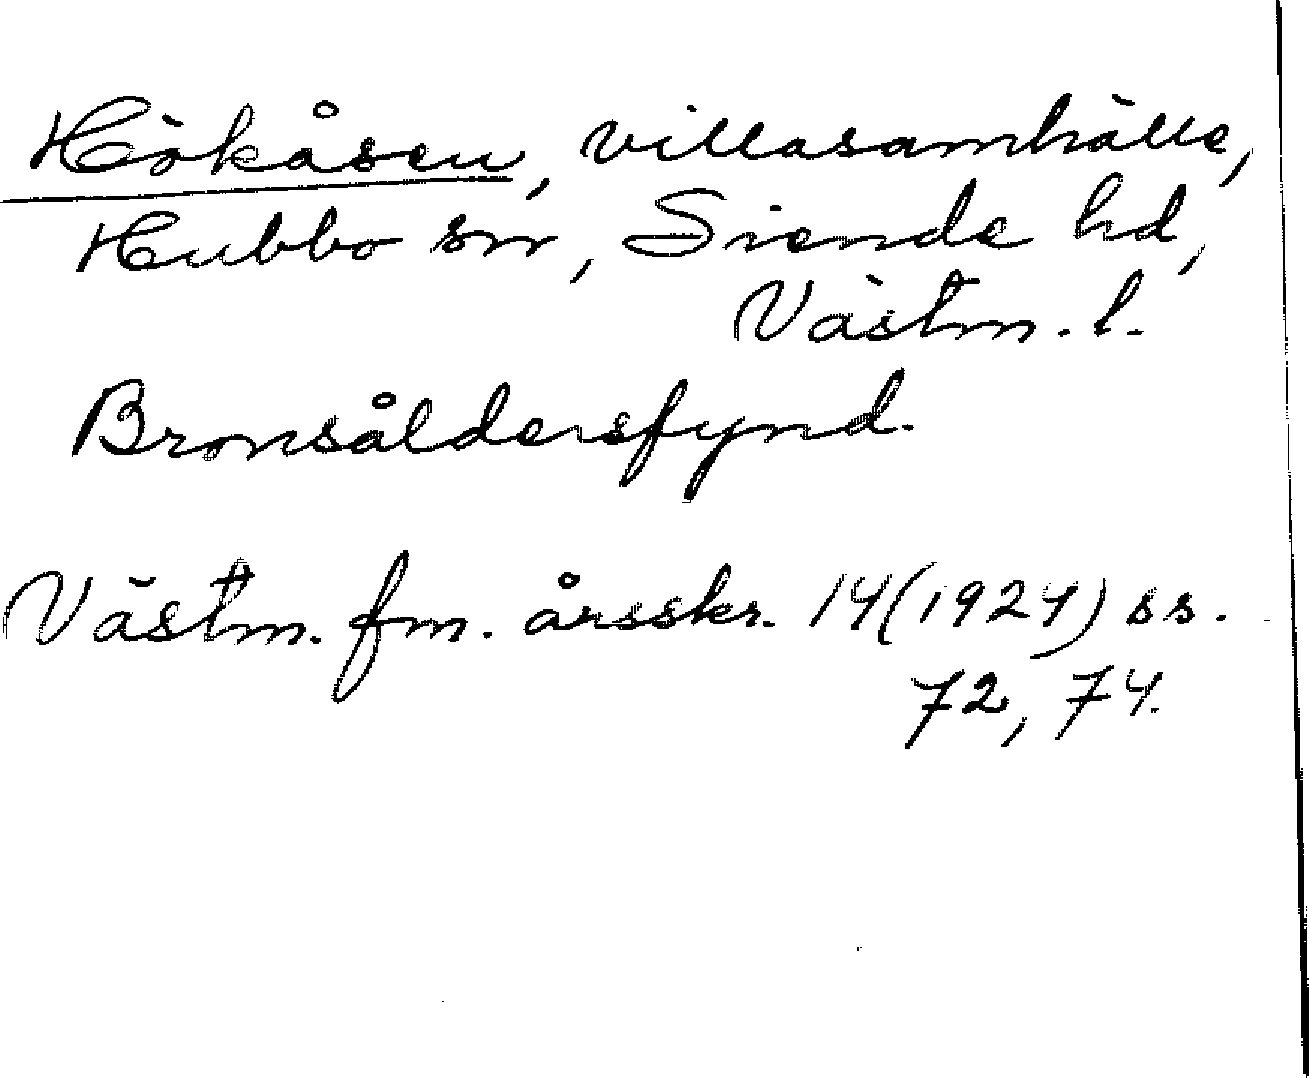 Hökåsen, villasamhälle,
Hubbo sn, Siende hd,
Västm. l.
Bronsåldersfynd.
Västm. fm. årsskr. 14 (1924) ss.
72, 74.